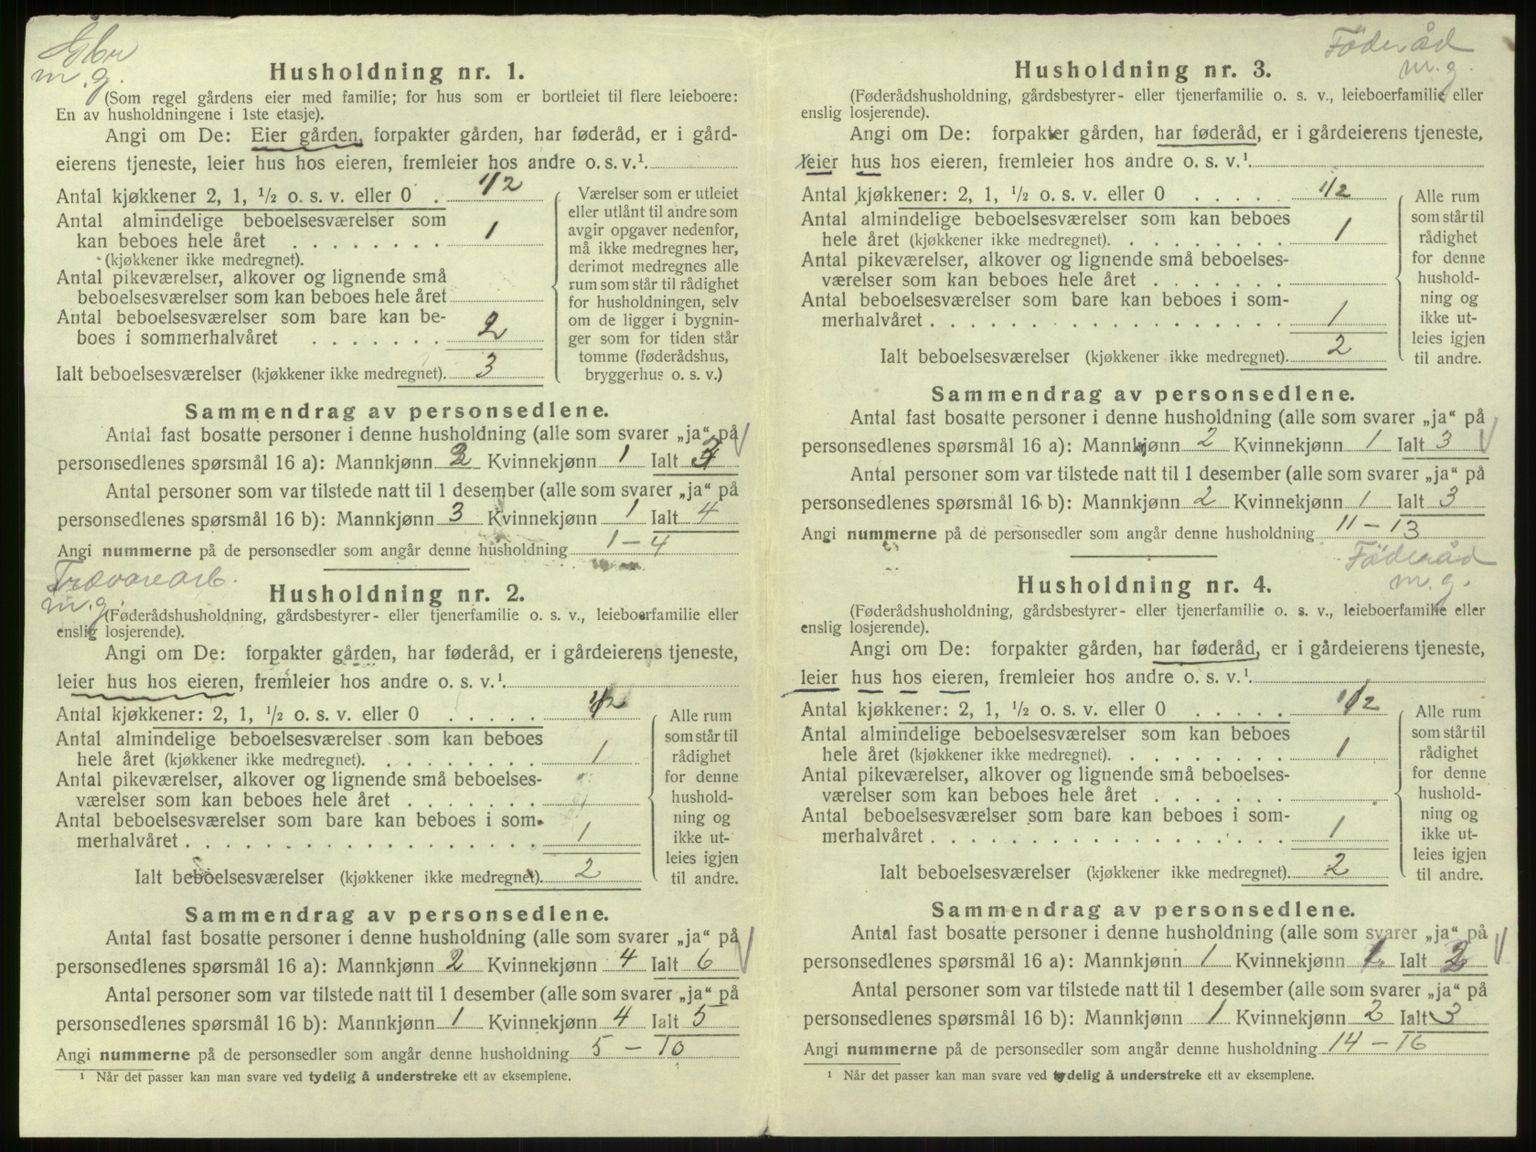 Gbr
m. g.
Husholdning nr. 1.
(Som regel gårdens eier med familie; for hus som er bortleiet til flere leieboere:
En av husholdningene i 1ste etasje).
Angi om De: Eier gården, forpakter gården, har føderåd, er i gård-
eierens tjeneste, leier hus hos eieren, fremleier hos andre o. s. v.¹
Antal kjøkkener 2, 1, ½ o. s. v. eller 0 . 1/2
Antal almindelige beboelsesværelser som
kan beboes hele året . . . . . . . . 1
(kjøkkener ikke medregnet).
Antal pikeværelser, alkover og lignende små
beboelsesværelser som kan beboes hele året
Antal beboelsesværelser som bare kan be-
boes i sommerhalvåret . . . . . . . 2
Ialt beboelsesværelser (kjøkkener ikke medregnet). 3
Værelser som er utleiet
eller utlånt til andre som
avgir opgaver nedenfor,
må ikke medregnes her,
derimot medregnes alle
rum som står til rådighet
for husholdningen, selv
om de ligger i bygnin-
ger som for tiden står
tomme (føderådshus,
bryggerhus o. s. v.)
Sammendrag av personsedlene.
Antal fast bosatte personer i denne husholdning (alle som svarer „ja“ på
personsedlenes spørsmål 16 a): Mannkjønn 2 Kvinnekjønn 1 Ialt 3
Antal personer som var tilstede natt til 1 desember (alle som svarer „ja“ på
personsedlenes spørsmål 16 b): Mannkjønn 3 Kvinnekjønn 1 Ialt 4
Angi nummerne på de personsedler som angår denne husholdning 1 – 4
Trævarearb.
m. g.
Husholdning nr. 2.
(Føderådshusholdning, gårdsbestyrer- eller tjenerfamilie o. s. v., leieboerfamilie eller
enslig losjerende).
Angi om De: forpakter gården, har føderåd, er i gårdeierens tjeneste,
leier hus hos eieren, fremleier hos andre o. s. v.¹
Antal kjøkkener: 2, 1, ½ o. s. v. eller 0 . . . . . 1/2
Antal almindelige beboelsesværelser som kan beboes
hele året (kjøkkener ikke medregnet). . . . . . . . . 1
Antal pikeværelser, alkover og lignende små beboelses-
værelser som kan beboes hele året . . . . . . .
Antal beboelsesværelser som bare kan beboes i som-
merhalvåret . . . . . . . . . . . . . . . . . 1
Ialt beboelsesværelser (kjøkkener ikke medregnet). 2
Alle rum
som står til
rådighet
for denne
hushold-
ning og
ikke ut-
leies igjen
til andre.
Sammendrag av personsedlene.
Antal fast bosatte personer i denne husholdning (alle som svarer „ja“ på
personsedlenes spørsmål 16 a): Mannkjønn 2 Kvinnekjønn 4 Ialt 6
Antal personer som var tilstede natt til 1 desember (alle som svarer „ja“ på
personsedlenes spørsmål 16 b): Mannkjønn 1 Kvinnekjønn 4 Ialt 5
Angi nummerne på de personsedler som angår denne husholdning 5 – 10
¹ Når det passer kan man svare ved tydelig å understreke ett av eksemplene.
Föderåd
m. g.
Husholdning nr. 3.
(Føderådshusholdning, gårdsbestyrer- eller tjenerfamilie o. s. v., leieboerfamilie eller
enslig losjerende).
Angi om De: forpakter gården, har føderåd, er i gårdeierens tjeneste,
leier hus hos eieren, fremleier hos andre o. s. v.¹
Antal kjøkkener: 2, 1, ½ o. s. v. eller 0 . . . . . 1/2
Antal almindelige beboelsesværelser som kan beboes
hele året (kjøkkener ikke medregnet). . . . . . . . . 1
Antal pikeværelser, alkover og lignende små beboelses-
værelser som kan beboes hele året . . . . . . .
Antal beboelsesværelser som bare kan beboes i som-
merhalvåret . . . . . . . . . . . . . . . . . 1
Ialt beboelsesværelser (kjøkkener ikke medregnet). 2
Alle rum
som står til
rådighet
for denne
hushold-
ning og
ikke ut-
leies igjen
til andre.
Sammendrag av personsedlene.
Antal fast bosatte personer i denne husholdning (alle som svarer „ja“ på
personsedlenes spørsmål 16 a): Mannkjønn 2 Kvinnekjønn 1 Ialt 3
Antal personer som var tilstede natt til 1 desember (alle som svarer „ja“ på
personsedlenes spørsmål 16 b): Mannkjønn 2 Kvinnekjønn 1 Ialt 3
Angi nummerne på de personsedler som angår denne husholdning 11 – 13
Föderåd
m. g.
Husholdning nr. 4.
(Føderådshusholdning, gårdsbestyrer- eller tjenerfamilie o. s. v., leieboerfamilie eller
enslig losjerende).
Angi om De: forpakter gården, har føderåd, er i gårdeierens tjeneste,
leier hus hos eieren, fremleier hos andre o. s. v.¹
Antal kjøkkener: 2, 1, ½ o. s. v. eller 0 . . . . . 1/2
Antal almindelige beboelsesværelser som kan beboes
hele året (kjøkkener ikke medregnet). . . . . . . . . 1
Antal pikeværelser, alkover og lignende små beboelses-
værelser som kan beboes hele året . . . . . . .
Antal beboelsesværelser som bare kan beboes i som-
merhalvåret . . . . . . . . . . . . . . . . . 1
Ialt beboelsesværelser (kjøkkener ikke medregnet). 2
Alle rum
som står til
rådighet
for denne
hushold-
ning og
ikke ut-
leies igjen
til andre.
Sammendrag av personsedlene.
Antal fast bosatte personer i denne husholdning (alle som svarer „ja“ på
personsedlenes spørsmål 16 a): Mannkjønn 1 Kvinnekjønn 1 Ialt 2
Antal personer som var tilstede natt til 1 desember (alle som svarer „ja“ på
personsedlenes spørsmål 16 b): Mannkjønn 1 Kvinnekjønn 2 Ialt 3
Angi nummerne på de personsedler som angår denne husholdning 14 – 16
¹ Når det passer kan man svare ved tydelig å understreke ett av eksemplene.